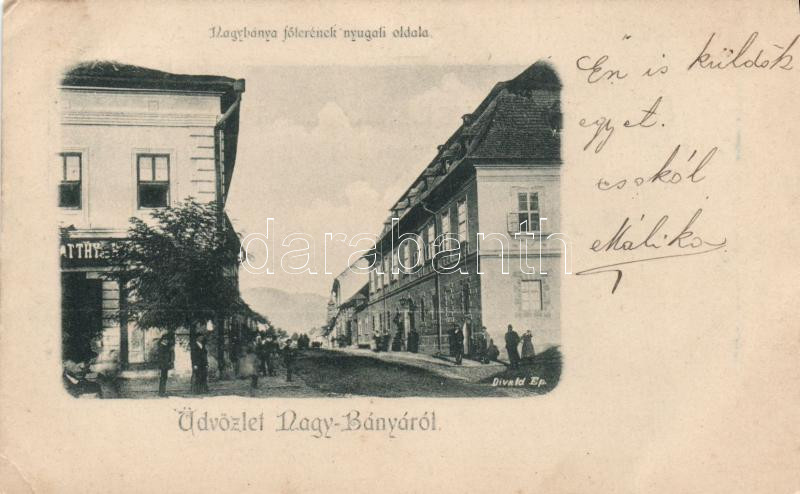 Nagybánya főterének nyugati oldala.
Én is küldök
egyet.
csókól
Málika
ATTHY
darabanth.com
Divald Ep.
Üdvözlet Nagy-Bányáról.